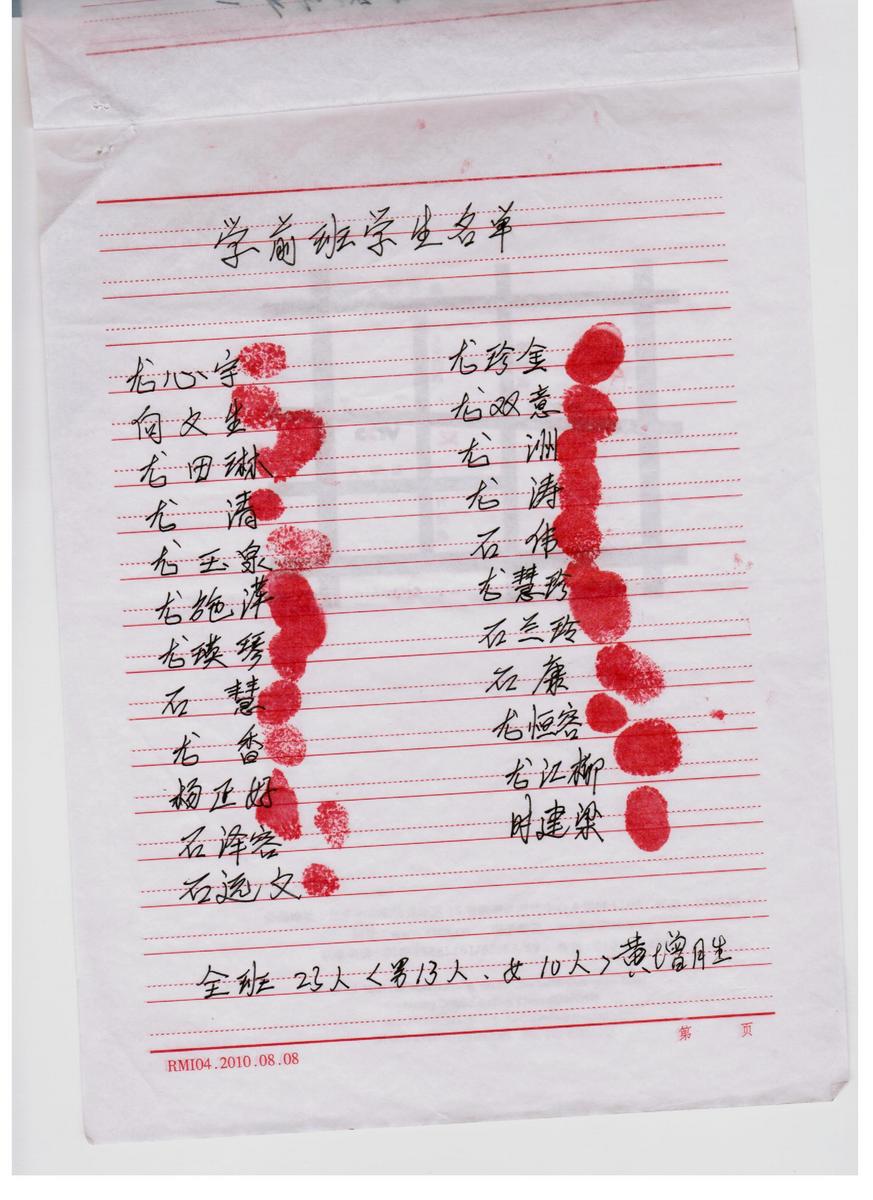 学前班学生名单
龙心宇
向文生
龙田琳
龙 清
龙玉泉
龙施萍
龙瑛琴
石 慧
龙 香
杨正好
石泽容
石远文
龙珍金
龙双意
龙 洲
龙 涛
石 伟
龙慧珍
石兰玲
石康
龙恒容
龙江柳
时建梁
全班23人<男13人、女10人>黄增胜
第 页
RMI04.2010.08.08